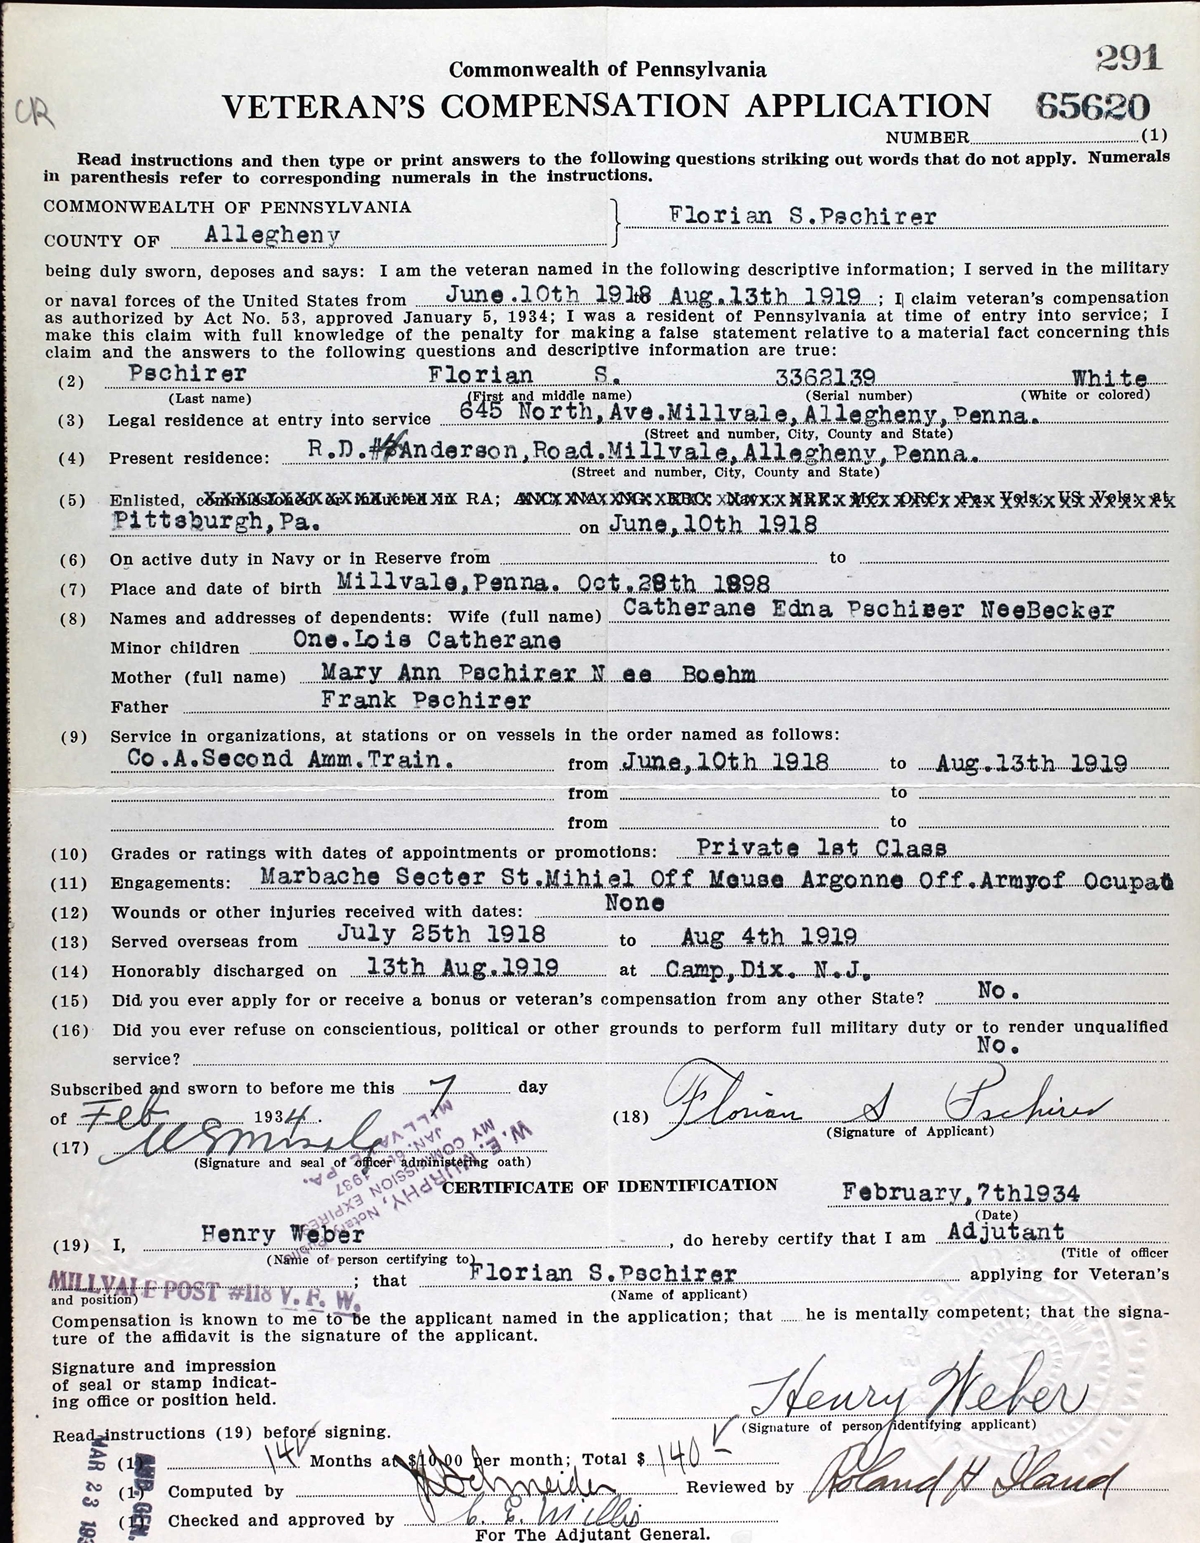 291
Commonwealth of Pennsylvania
CR
VETERAN'S COMPENSATION APPLICATION 65620
NUMBER (1)
Read instructions and then type or print answers to the following questions striking out words that do not apply. Numerals
in parenthesis refer to corresponding numerals in the instructions.
COMMONWEALTH OF PENNSYLVANIA
Florian S.Pschirer
COUNTY OF Allegheny
being duly sworn, deposes and says: I am the veteran named in the following descriptive information; I served in the military
or naval forces of the United States from June.10th 1918 to Aug.13th 1919 ; I claim veteran's compensation
as authorized by Act No. 53, approved January 5, 1934; I was a resident of Pennsylvania at time of entry into service; I
make this claim with full knowledge of the penalty for making a false statement relative to a material fact concerning this
claim and the answers to the following questions and descriptive information are true:
(2) Pschirer Florian S. 3362139 White
(Last name) (First and middle name) (Serial number) (White or colored)
(3) Legal residence at entry into service 645 North,Ave.Millvale,Allegheny,Penna.
(Street and number, City, County and State)
(4) Present residence: R.D.#4 Anderson,Road.Millvale,Allegheny,Penna.
(Street and number, City, County and State)
(5) Enlisted, commissioned or inducted in RA; ANC, NA, NG, ERC, Navy, NRF, MC, ORC, Pa. Vols; US Vols; at
Pittsburgh,Pa. on June,10th 1918
(6) On active duty in Navy or in Reserve from to
(7) Place and date of birth Millvale,Penna. Oct.28th 1898
(8) Names and addresses of dependents: Wife (full name) Catherane Edna Pschirer NeeBecker
Minor children One.Lois Catherane
Mother (full name) Mary Ann Pschirer N ee Boehm
Father Frank Pschirer
(9) Service in organizations, at stations or on vessels in the order named as follows:
Co.A.Second Amm.Train. from June,10th 1918 to Aug.13th 1919
from to
from to
(10) Grades or ratings with dates of appointments or promotions: Private 1st Class
(11) Engagements: Marbache Secter St.Mihiel Off Meuse Argonne Off.Armyof Ocupat
(12) Wounds or other injuries received with dates: None
(13) Served overseas from July 25th 1918 to Aug 4th 1919
(14) Honorably discharged on 13th Aug.1919 at Camp,Dix. N.J.
(15) Did you ever apply for or receive a bonus or veteran's compensation from any other State? No.
(16) Did you ever refuse on conscientious, political or other grounds to perform full military duty or to render unqualified
service? No.
Subscribed and sworn to before me this 7 day
of Feb 1934.
(18) Florian S Pschirer
(Signature of Applicant)
(17)
(Signature and seal of officer administering oath)
W. E. MURPHY, Notary Public
MY COMMISSION EXPIRES
JAN. 1937
MILLVALE, PA.
CERTIFICATE OF IDENTIFICATION
February,7th1934
(Date)
(19) I, Henry Weber , do hereby certify that I am Adjutant
(Name of person certifying to) (Title of officer
MILLVALE POST #118 V. F. W. ; that Florian S.Pschirer applying for Veteran's
and position) (Name of applicant)
Compensation is known to me to be the applicant named in the application; that he is mentally competent; that the signa-
ture of the affidavit is the signature of the applicant.
Signature and impression
of seal or stamp indicat-
ing office or position held.
Henry Weber
(Signature of person identifying applicant)
Read instructions (19) before signing.
(1) 14 Months at $10.00 per month; Total $ 140
(1) Computed by Schneider Reviewed by Roland H Iland
(1) Checked and approved by C. E. Willis
For The Adjutant General.
MAR 23 193
ADJ. GEN.